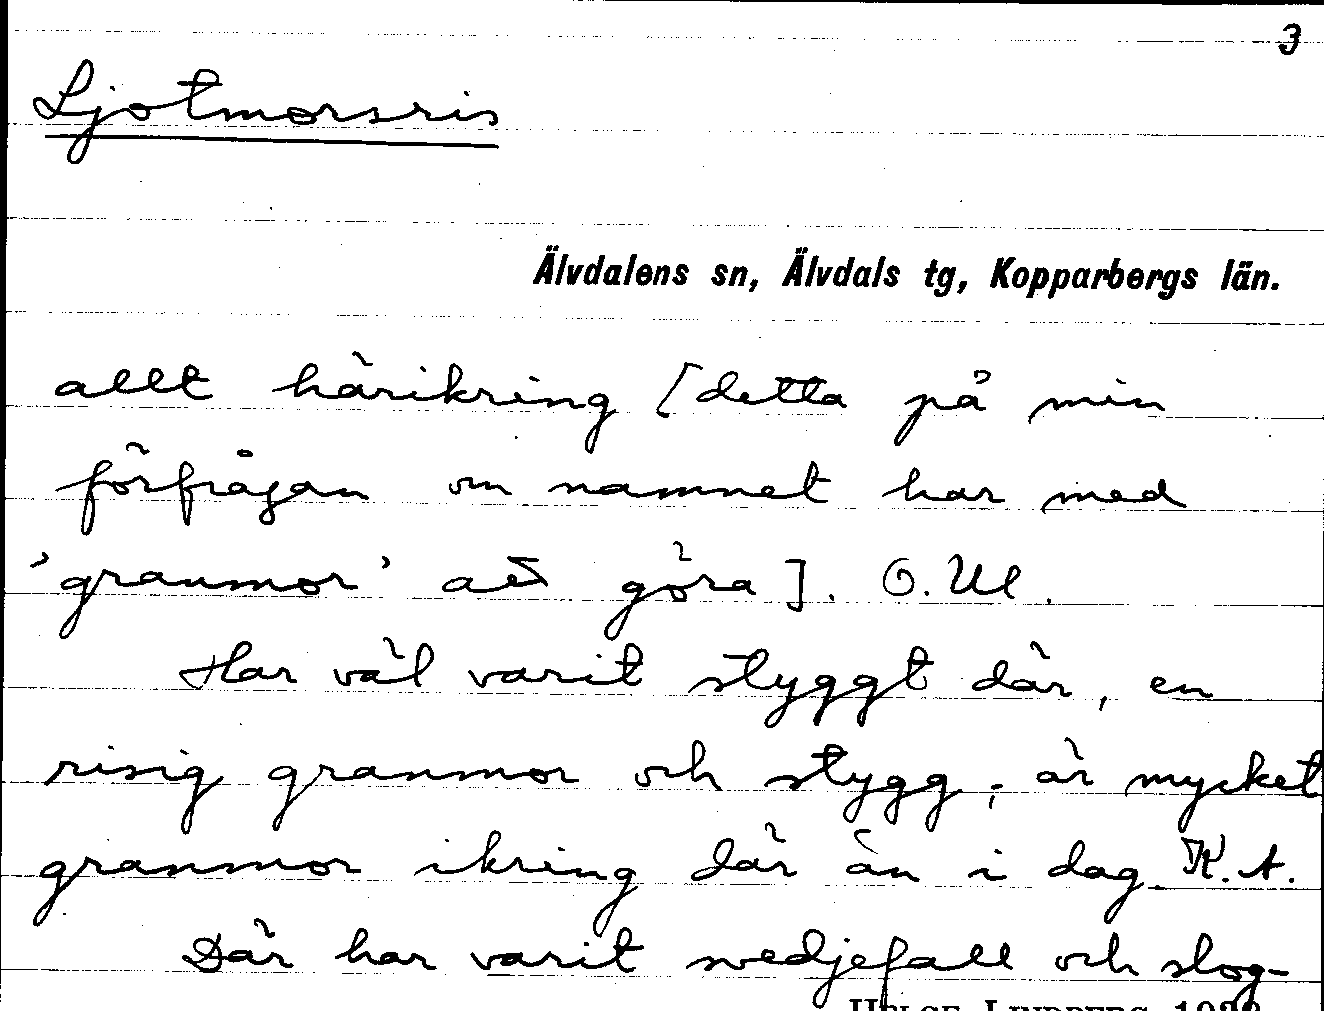 3
Ljotmorsris
Älvdalens sn, Älvdals tg, Kopparbergs län.
allt härikring [detta på min
förfrågan om namnet har med
'granmor' att göra]. O. Ul.
Har väl varit styggt där, en
risig granmor och stygg; är mycket
granmor ikring där än i dag. K.A.
Där har varit svedjefall och slog-
HELGE LINDBERG